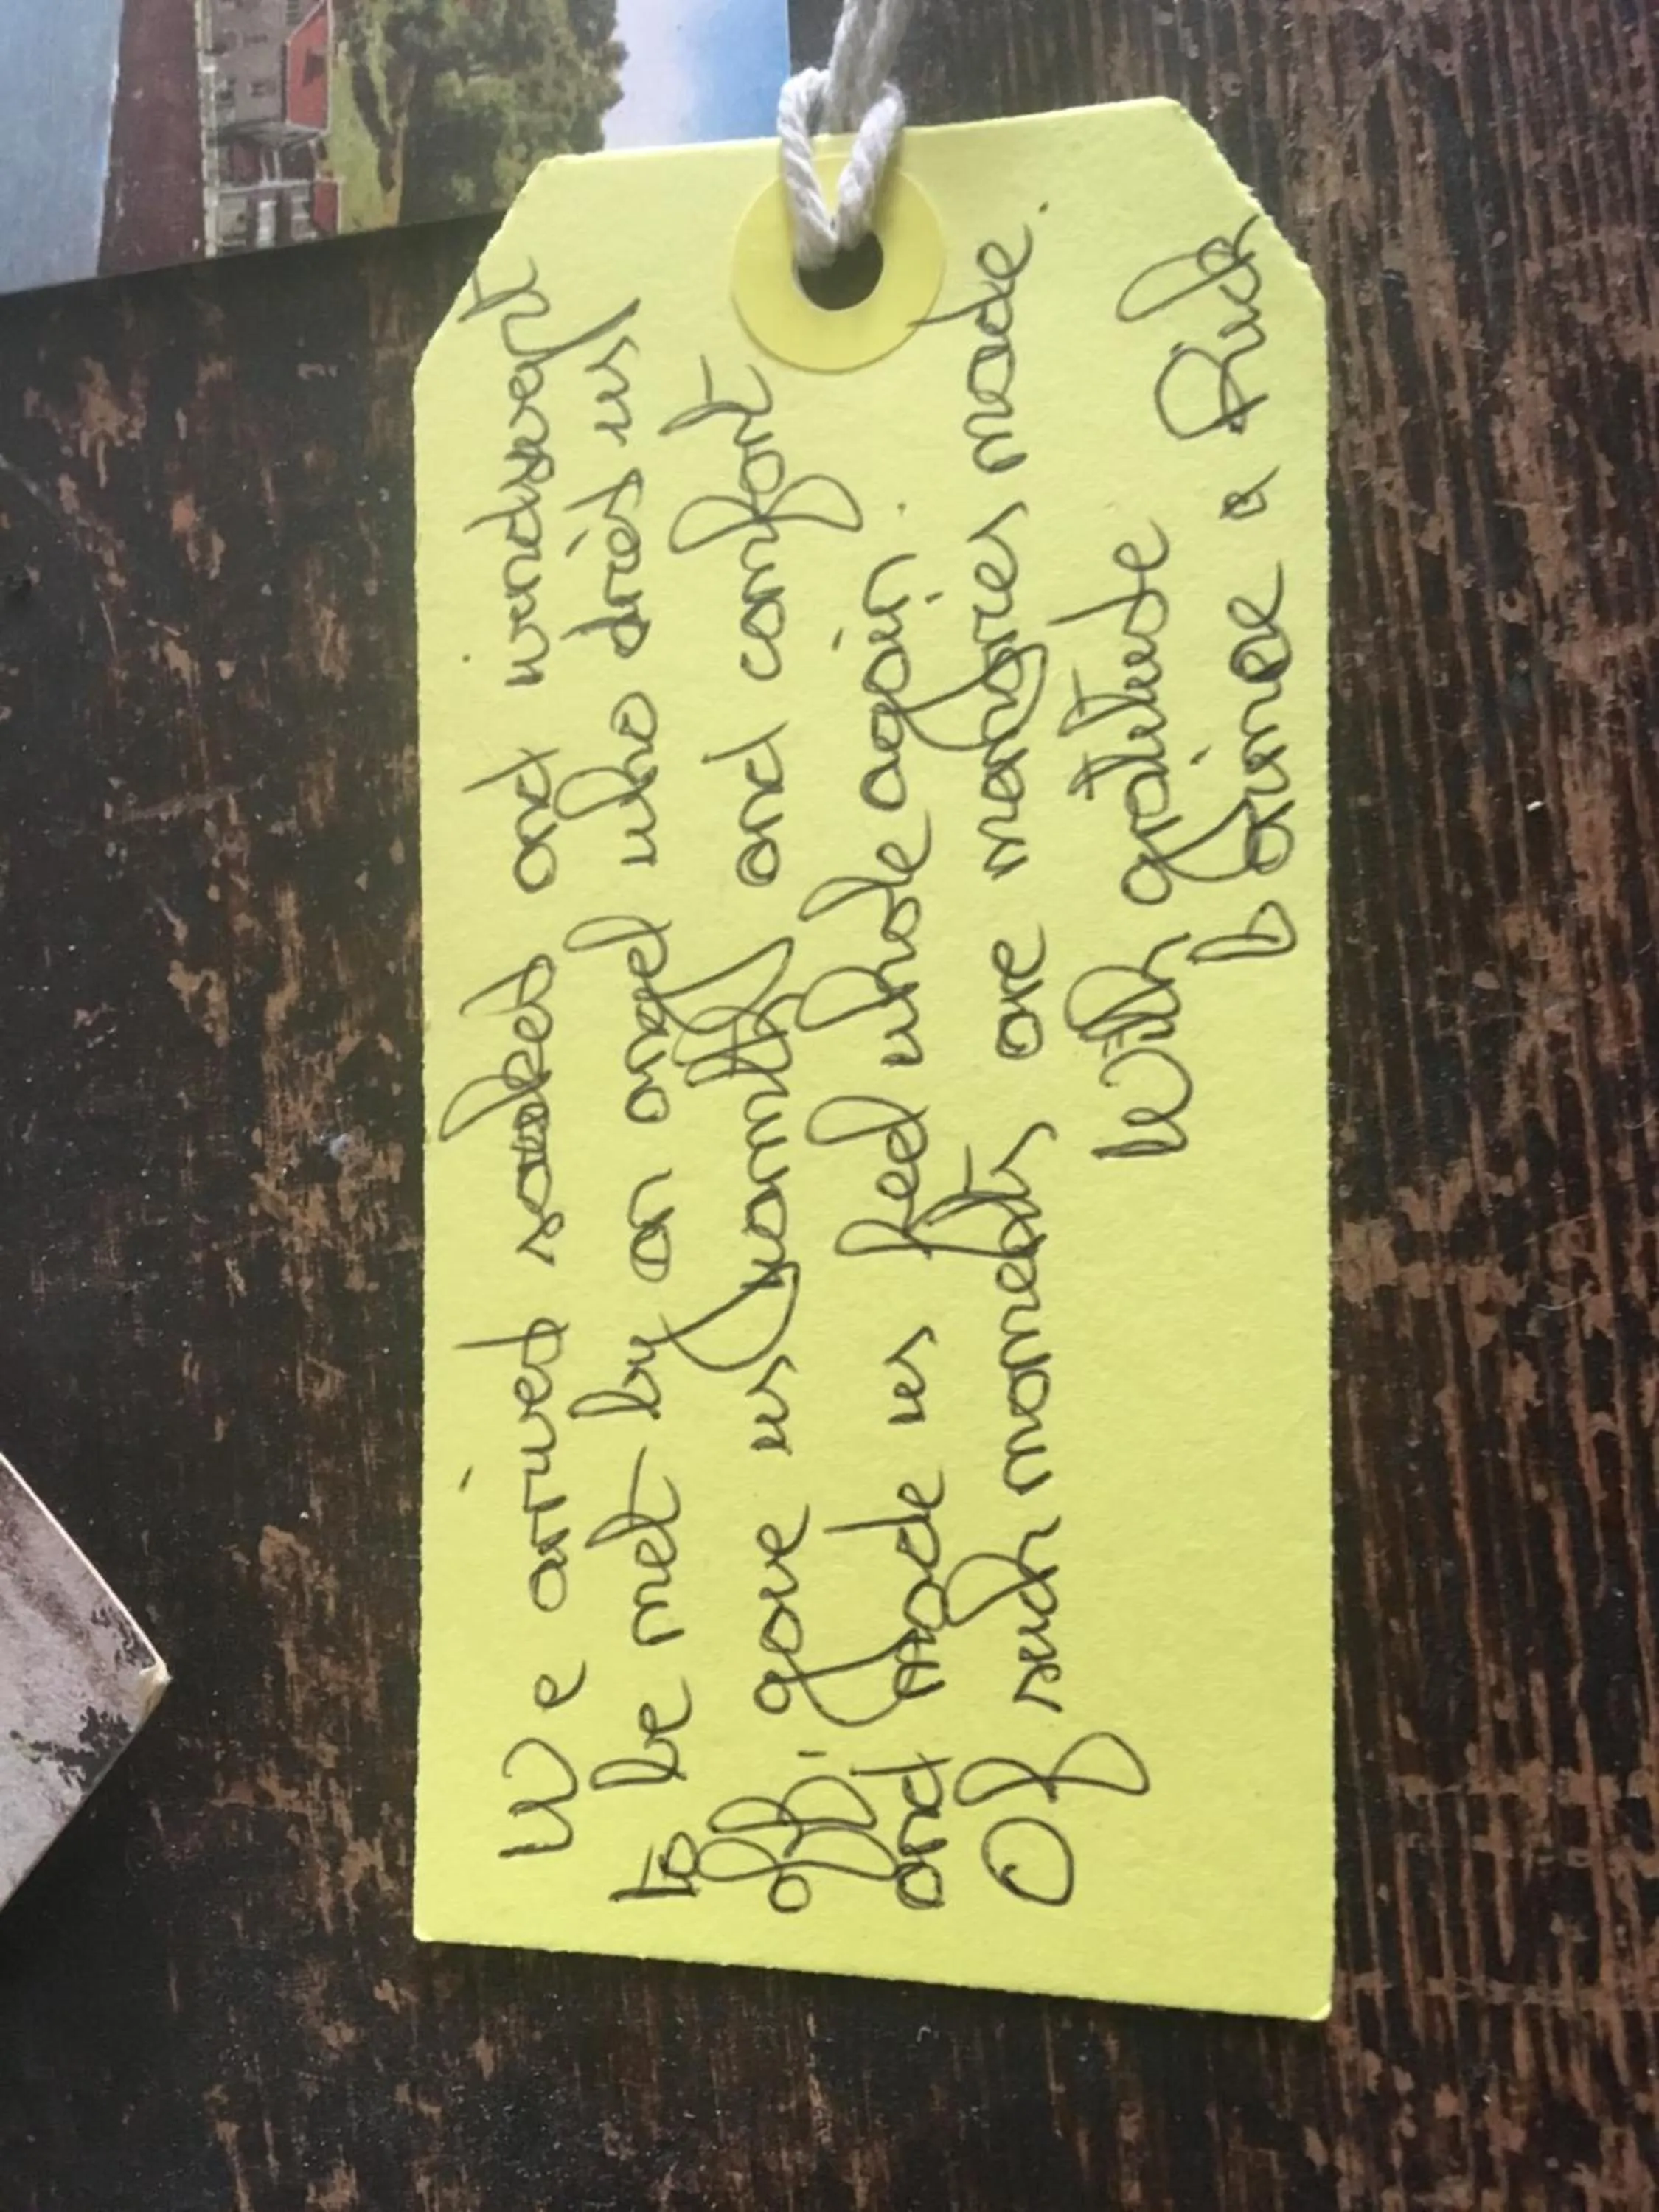 We arrived soaked and windswept
to be met by an angel who dried us
off, gave us warmth and comfort
and made us feel whole again.
Of such moments are memories made.
With gratitude
& Rick